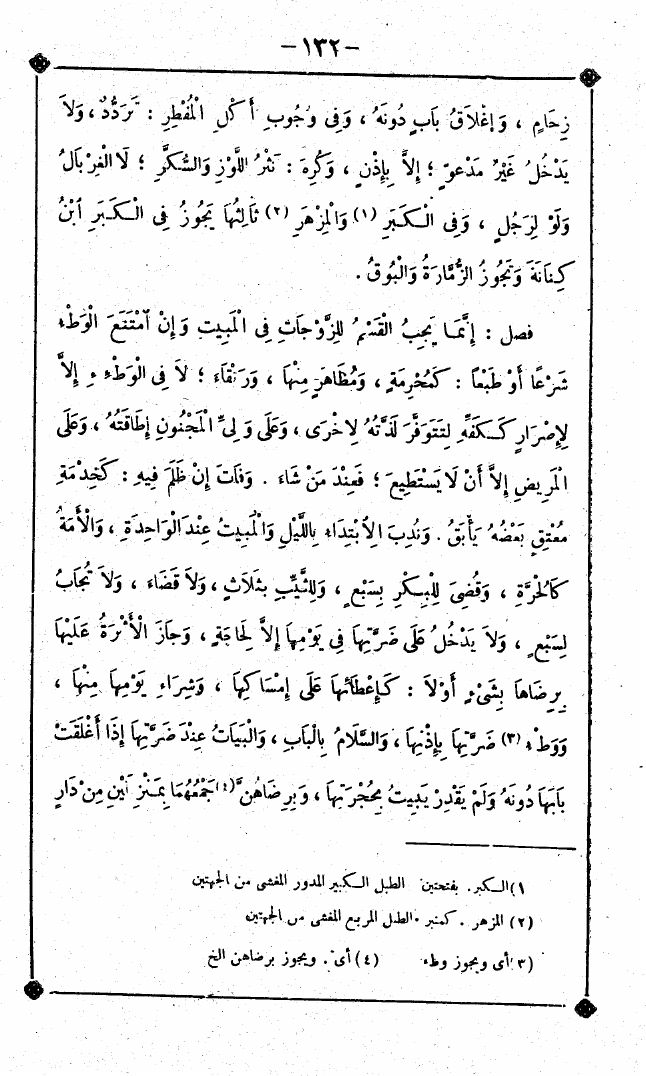 -١٣٢-
زِحَامٍ ، وَإِغْلَاقُ بَابٍ دُونَهُ ، وَفِى وُجُوبِ أَكْلِ الْمُفْطِرِ : تَرَدُّدٌ ، وَلاَ
يَدْخُلُ غَيْرُ مَدْعُوٍّ ؛ إِلاَّ بِإِذْنٍ ، وَكُرِهَ : نَثْرُ اللَّوْزِ وَالسُّكَّرِ ؛ لاَ الْغِرْبَالُ
وَلَوْ لِرَجُلٍ ، وَفِى الْكَبَرِ (١) وَالْمِزْهَرِ (٢) ثَالِثُهَا يَجُوزُ فِى الْكَبَرِ ابْنُ
كِنَانَةَ وَتَجُوزُ الزُّمَّارَةُ وَالْبُوقُ .
فصل : إِنَّمَا يَجِبُ الْقَسْمُ لِلزَّوْجَاتِ فِى الْمَبِيتِ وَإِنْ امْتَنَعَ الْوَطْءُ
شَرْعًا أَوْ طَبْعًا : كَمُحْرِمَةٍ ، وَمُظَاهَرٍ مِنْهَا ، وَرَتْقَاءَ ؛ لاَ فِى الْوَطْءِ إِلاَّ
لِإِضْرَارٍ كَكَفِّهِ لِتَتَوَفَّرَ لَذَّتُهُ لِأُخْرَى ، وَعَلَى وَلِىِّ الْمَجْنُونِ إِطَافَتُهُ ، وَعَلَى
الْمَرِيضِ إِلاَّ أَنْ لاَ يَسْتَطِيعَ ؛ فَعِنْدَ مَنْ شَاءَ . وَفَاتَ إِنْ ظَلَمَ فِيهِ : كَخِدْمَةِ
مُعْتَقٍ بَعْضُهُ يَأْبَقُ . وَنُدِبَ الِابْتِدَاءُ بِاللَّيْلِ وَالْمَبِيتُ عِنْدَ الْوَاحِدَةِ ، وَالْأَمَةُ
كَالْحُرَّةِ ، وَقُضِىَ لِلْبِكْرِ بِسَبْعٍ ، وَلِلثَّيِّبِ بِثَلاَثٍ ، وَلاَ قَضَاءَ ، وَلاَ تُجَابُ
لِسَبْعٍ ، وَلاَ يَدْخُلُ عَلَى ضَرَّتِهَا فِى يَوْمِهَا إِلاَّ لِحَاجَةٍ ، وَجَازَ الْأَثْرَةُ عَلَيْهَا
بِرِضَاهَا بِشَىْءٍ أَوْ لاَ : كَإِعْطَائِهَا عَلَى إِمْسَاكِهَا ، وَشِرَاءِ يَوْمِهَا مِنْهَا ،
وَوَطْءُ (٣) ضَرَّتِهَا بِإِذْنِهَا ، وَالسَّلاَمُ بِالْبَابِ ، وَالْبَيَاتُ عِنْدَ ضَرَّتِهَا إِذَا أَغْلَقَتْ
بَابَهَا دُونَهُ وَلَمْ يَقْدِرْ يَبِيتُ بِحُجْرَتِهَا ، وَبِرِضَاهُنَّ (٤) جَمْعُهُمَا بِمَنْزِلَيْنِ مِنْ دَارٍ
١) الكبر . بفتحتين الطبل الكبير المدور المغشى من الجهتين
(٢) المزهر . كمنبر الطبل المربع المغشى من الجهتين
(٣ أى ويجوز وطء (٤) أى . ويجوز برضاهن الخ